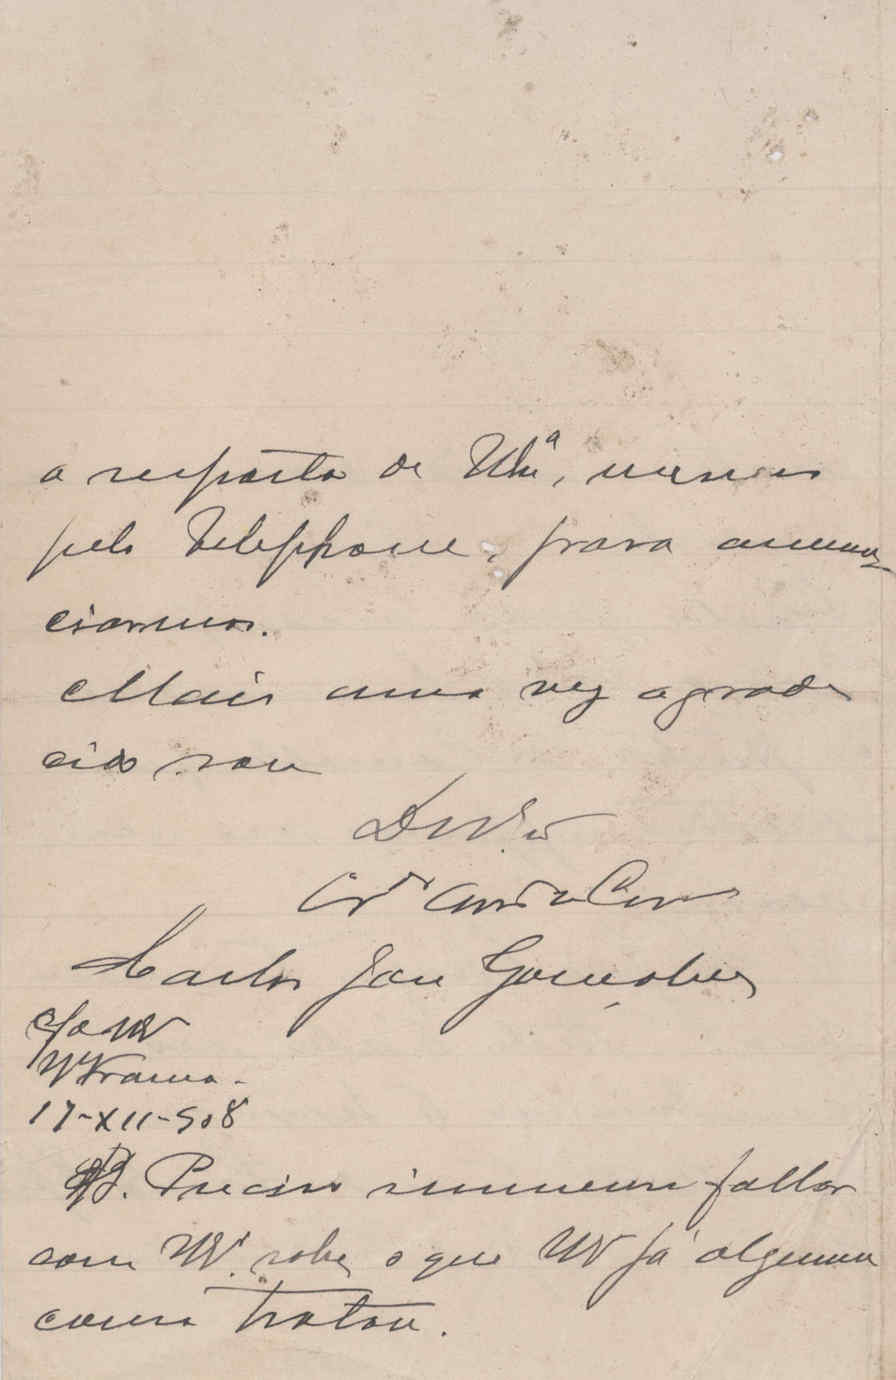 a resposta de V. Sª, mesmo
pelo telephone, para annun-
ciarmos.
Mais uma vez agrade
cido sou
De V. Sª
Crº Amº e
Carlos José Gonsalves
17-XII-908
PS. Preciso immenso fallar
com V. Sª. sobre o que já alguma
cousa tratou.